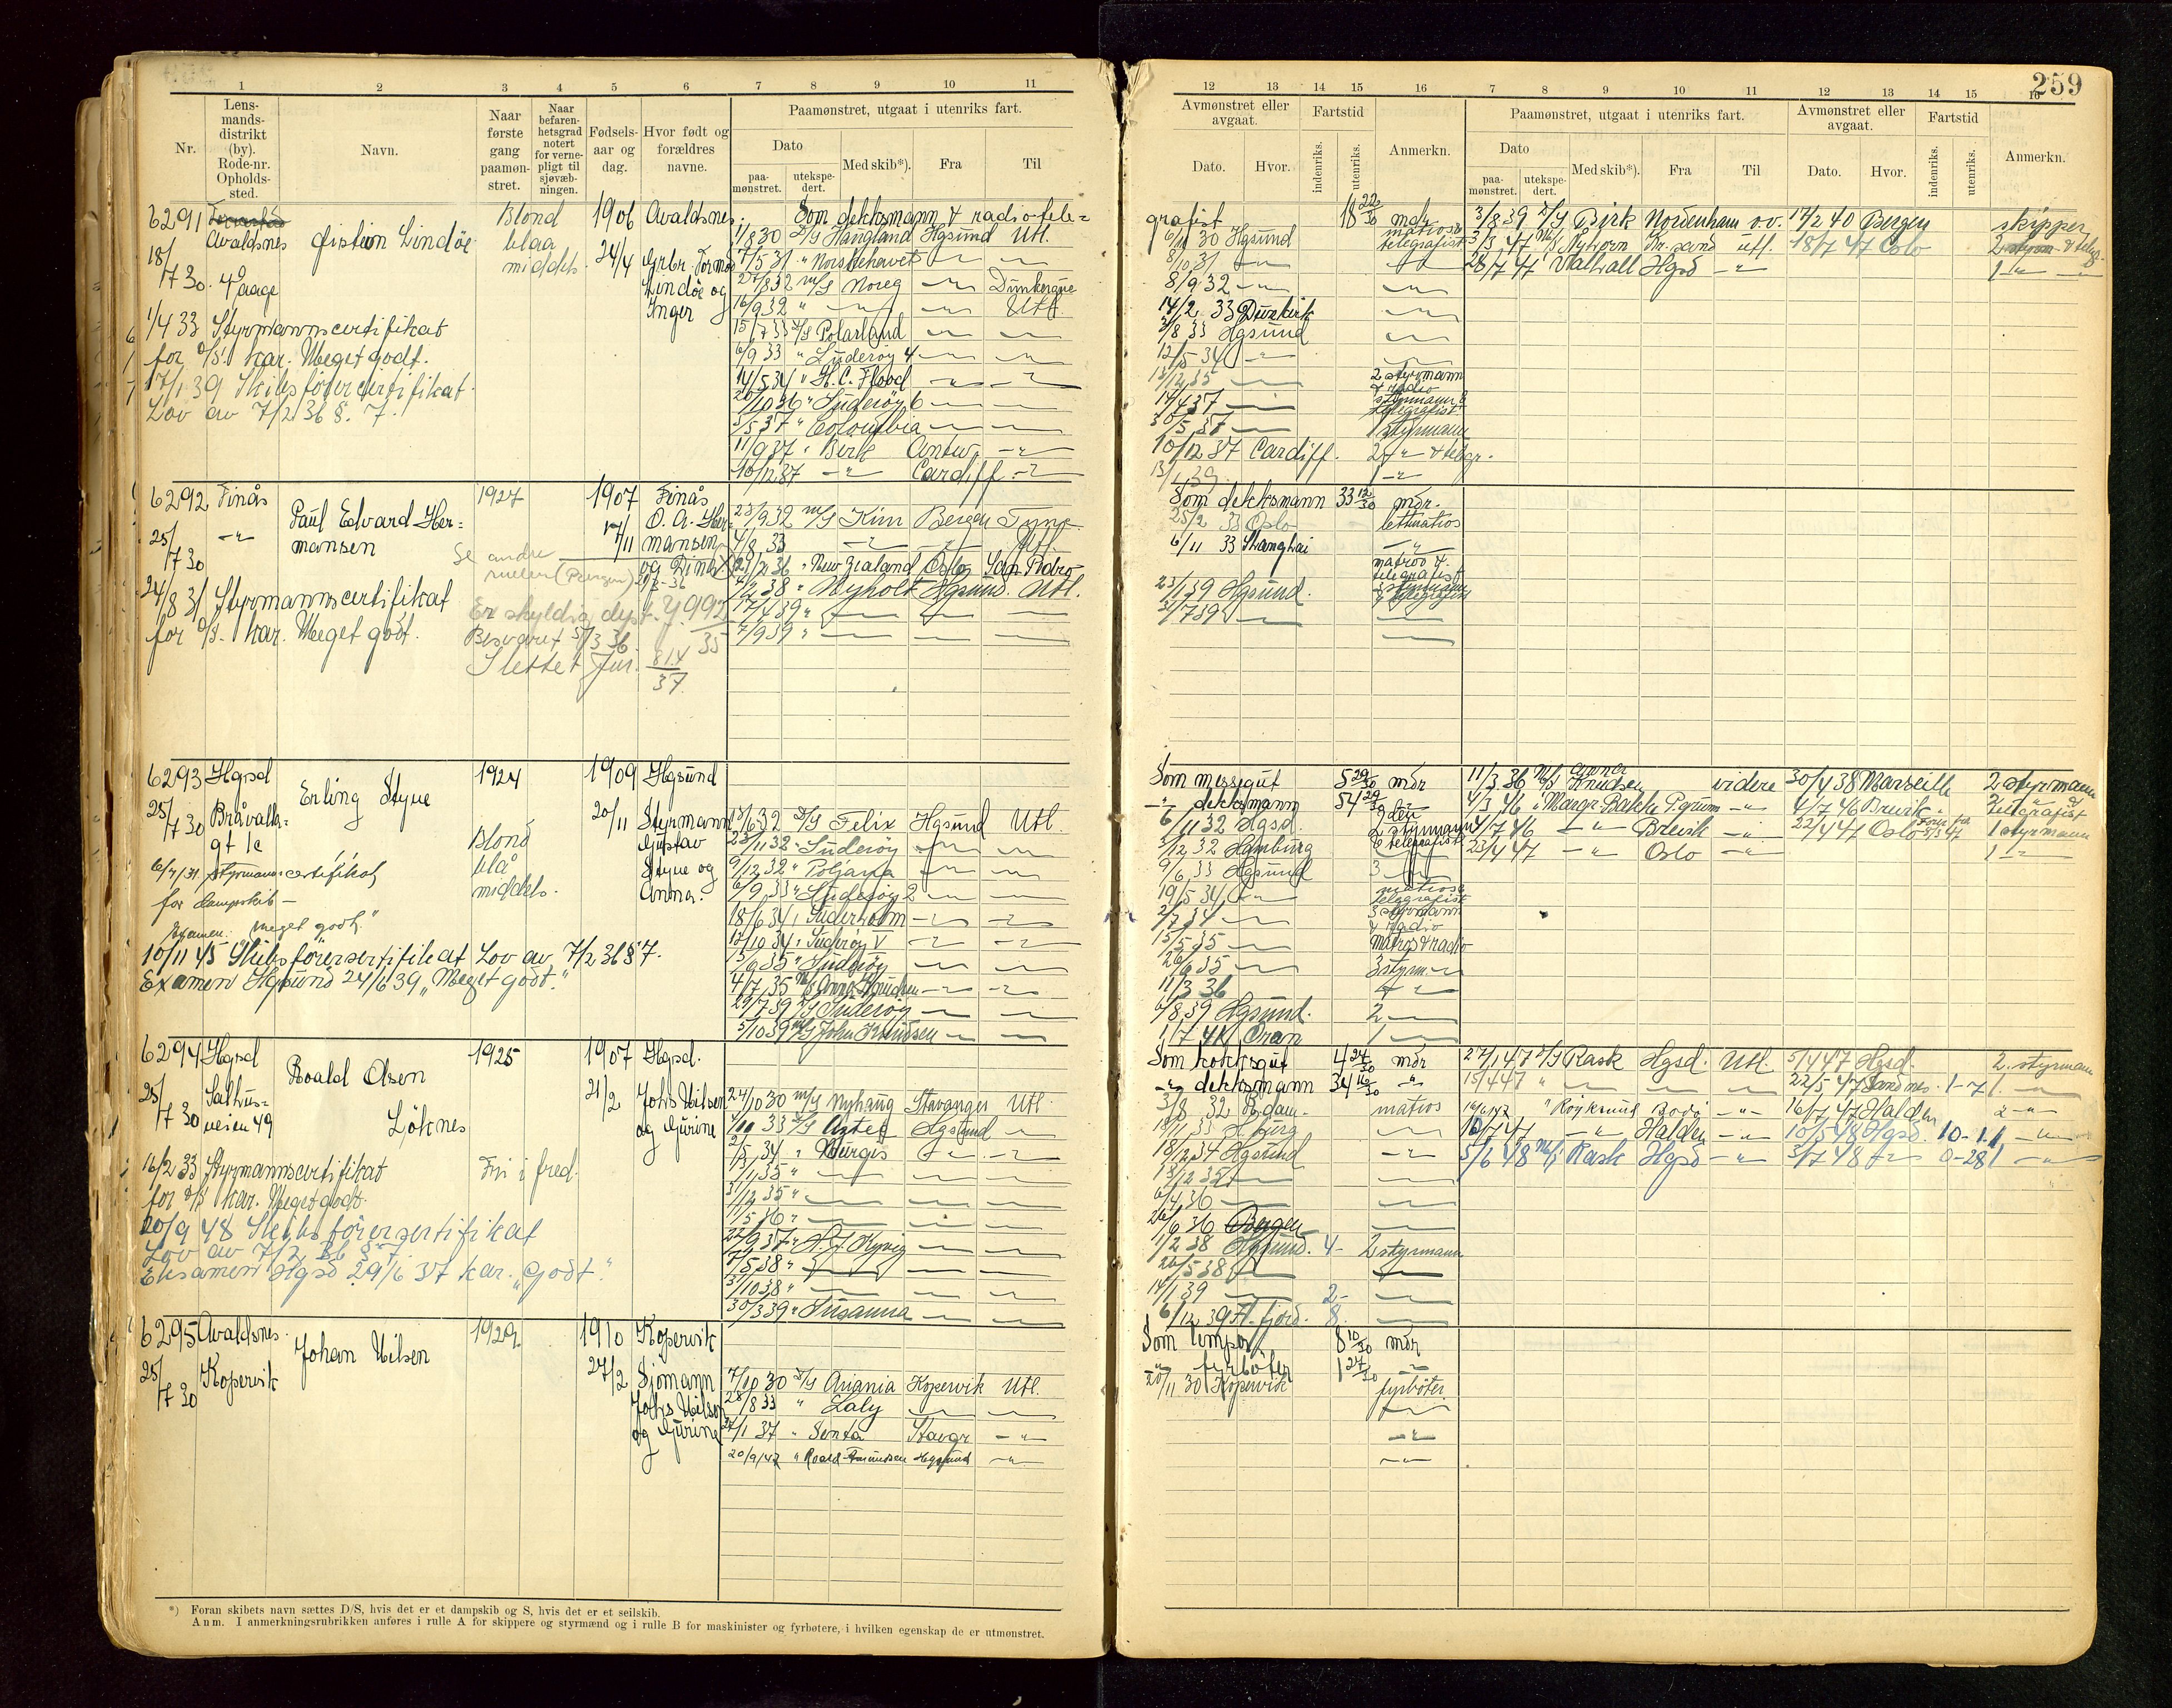 259
1 2 3 4 5 6 7 8 9 10 11
Nr.
Lens-
mands-
distrikt
(by).
Rode-nr.
Opholds-
sted.
Navn.
Naar
første
gang
paamøn-
stret.
Naar
befaren-
hetsgrad
notert
for verne-
pligt til
sjøvæb-
ningen.
Fødsels-
aar og
dag.
Hvor født og
forældres
navne.
Paamønstret, utgaat i utenriks fart.
Dato
paa-
mønstret.
utekspe-
dert.
Med skib*).
Fra
Til
12 13 14 15 16 7 8 9 10 11 12 13 14 15 16
Avmønstret eller
avgaat.
Dato. Hvor.
Fartstid
indenriks.
utenriks.
Anmerkn.
Paamønstret, utgaat i utenriks fart.
Dato
paa-
mønstret.
utekspe-
dert.
Med skib*).
Fra
Til
Avmønstret eller
avgaat.
Dato. Hvor.
Fartstid
indenriks.
utenriks.
Anmerkn.
6291
Avaldsnes
18/7 30
Øistein Lindöe
Blond
blaa
middels
1906
24/4
Avaldsnes
Lindöe og
Inger
1/4 33 Styrmannscertifikat
for d/s. kar. Meget godt.
17/1 39 Skibsförercertifikat
Lov av 7/2 36 §. 7.
Som dekksmann & radiotele=
1/8 30 D/S Haugland Hgsund Utl.
7/5 31 " Norskehavet
27/8 32 m/S Noreg Dunkerque
16/9 32 " Utl.
15/7 33 D/S Polarland
6/9 33 " Suderöy 4
14/5 34 " K. C. Flood
20/10 36 " Suderöy 6
3/5 37 " Colombia
11/9 37 " Birk Antw.
10/12 37 Cardiff
grafist 18 22/30 mdr
6/11 30 Hgsund matros & telegrafist
8/10 31
8/9 32
14/2 33 Dunkirk
3/8 33 Hgsund
12/5 34
13/12 35 2 styrmann & radio
14/4 37 styrmann & telegrafist
30/5 37 1 styrmann
10/12 37 Cardiff. & telegr.
13/4 39
3/8 39 D/S Birk Nordenham o.v. 17/2 40 Bergen skipper
Kr.sand utl. 18/7 47 Oslo
28/7 47 Valhall Hgsd
6292
Finås
25/7 30
Paul Edvard Her=
mansen
1927
1907
17/11
Finås
O. A. Her=
mansen
24/8 31 Styrmannscertifikat
for d/s. kar. Meget godt.
Se andre
rullen (Pengen)
Er skyldig dypt. J 992/35
Besvaret 5/3 36
Slettet Jnr. 814/37
23/9 32 m/S Kim Bergen Tyne
4/8 33 Utl.
21/2 36 " New Zealand Oslo San Pedro
4/2 38 " Nyholt Hgsund. Utl.
17/4 39 "
7/9 39 "
Som dekksmann 33 12/30 mdr.
25/2 33 Oslo lettmatros
6/11 33 Shanghai
matros & telegrafist
23/1 39 Hgsund.
31/7 39
6293
Hgsd
25/7 30
Bråvalla=
gt 1c
Erling Styve
1924
Blond
blå
middels.
1909
20/11
Hgsund
Styrmann
Gustav
Styve og
Anna.
6/7/31 Styrmannscertifikat,
for dampskib —
Examen: "Meget godt."
10/11 45 Skibsförersertifikat Lov av 7/2 36 § 7.
Examen Hgsund 24/6 39 „Meget godt."
15/6 32 D/S Felix Hgsund Utl.
23/11 32 " Suderöy
9/12 32 " Poljana
6/9 33 " Suderöy 2
18/6 34 " Suderholm
12/10 34 " Suderöy V
15/6 35 " Suderöy
4/7 35 M/S Anna Knudsen
29/7 39 D/S Suderöy
5/10 39 M/S John Knudsen
Som messegut 5 29/30 mdr
dekksmann 54 29/30
6/11 32 Hgsd. 2 styrmann
3/12 32 Hamburg & telegrafist
9/6 33 Hgsund 3
19/5 34 matros & telegrafist
2/7 34 3 styrmann & radio
15/5 35 matros & radio
26/6 35 3 styrm.
11/3 36
6/8 39 Hgsund. 2
1/7 41 Oran 1
11/3 36 M/S Anna Knudsen videre 30/4 38 Marseille 2 styrmann
4/3 46 " Margr. Bakke P.grunn 4/7 46 Brevik telegrafist
4/7 46 Brevik 22/4 47 Oslo 1 styrmann
23/4 47 Oslo
6294
Hgsd
25/7 30
Salhus=
veien 49
Roald Olsen
Löknes
1925
Fri i fred.
1907
21/2
Hgsd.
Johs Nilsen
og Gurine
16/2 33 Styrmannscertifikat
for d/s kar. Meget godt.
20/9 48 Skibsförersertifikat
Lov av 7/2 36 § 7.
Eksamen Hgsd 29/6 37 kar. „Godt."
24/10 30 m/S Nyhaug Stavanger Utl.
1/10 33 D/S Astec Hgsund
2/5 34 " Burgis
1/1 35 "
31/12 35 "
1/5 36 "
22/9 37 " H. J. Kyvig
7/5 38 "
3/10 38 "
30/3 39 " Susanna
Som kokksgut 4 24/30 mdr
dekksmann 34 16/30
3/8 32 R.dam. matros
18/11 33 H.burg
18/12 34 Hgsund
18/12 35
6/4 36
26/6 36 Bergen
1/2 38 Hgsund. 4- 2 styrmann
20/5 38
14/1 39 2-
6/12 39 Fl.fjord. 8.
27/1 47 D/S Rask Hgsd. Utl. 5/4 47 Hgsd. 2. styrmann
15/4 47 " 22/5 47 Sandnes. 1-7 1
16/6 47 " Röyksund Bodö 16/7 47 Halden 2
Halden 10/5 48 Hgsd. 10-1
5/6 48 M/S Rask Hgsd 3/7 48 0-28 1
6295
Avaldsnes.
25/7 30
Kopervik
Johan Nilsen
1929
1910
27/2
Kopervik
Sjömann
Johs Nilsen
og Gurine
7/10 30 D/S Ariania Kopervik Utl.
28/8 33 " Laly
22/1 37 " Senta Stavgr
20/9/47 " Roald Amundsen Hgsund
Som lempor 8 10/30 mdr
" fyrböter 1 24/30
20/11 30 Kopervik fyrböter.
*) Foran skibets navn sættes D/S, hvis det er et dampskib og S, hvis det er et seilskib.
Anm. I anmerkningsrubrikken anføres i rulle A for skippere og styrmænd og i rulle B for maskinister og fyrbøtere, i hvilken egenskap de er utmønstret.